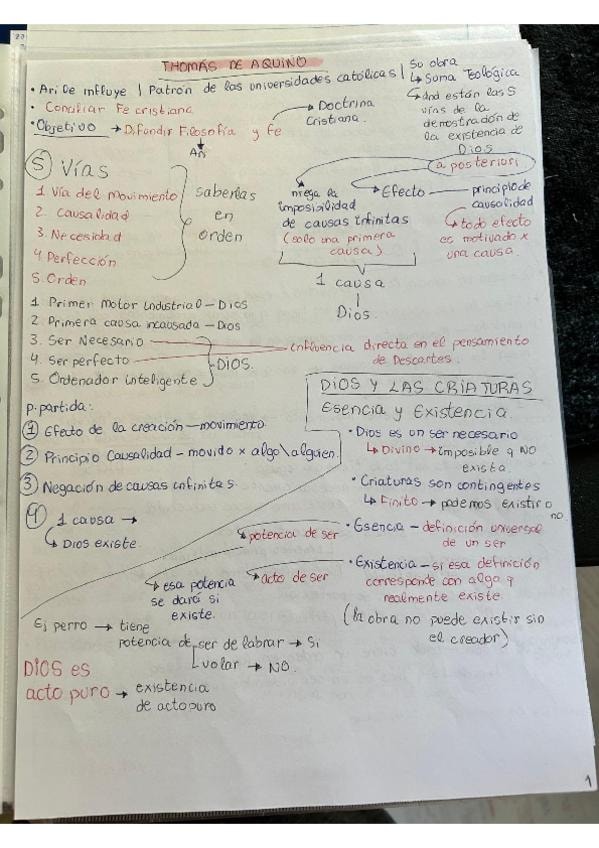 THOMÁS DE AQUINO
• Ari le influye | Patrón de las universidades católicas |
Su obra
↳ Suma Teológica
↳ Ahd están las 5
vías de la
demostración de
la existencia de
Dios
• Conciliar Fe cristiana
• Objetivo → Difundir Filosofía y Fe
→ Doctrina
Cristiana.
Ari
a posteriori
5 Vías
1 Vía del Movimiento
2. Causalidad
3. Necesidad
4 Perfección
5. Orden
saberlas
en
orden
niega la
imposibilidad
de causas infinitas
(solo una primera
causa)
→ Efecto — principio de
causalidad
↳ todo efecto
es motivado x
una causa.
1 causa
Dios.
1 Primer motor Industrial – Dios
2. Primera causa incausada – Dios
3. Ser Necesario
4. Ser perfecto
5. Ordenador inteligente
DIOS.
influencia directa en el pensamiento
de Descartes.
P. partida:
1 Efecto de la creación – movimiento.
2 Principio Causalidad – movido x algo\alguien.
3 Negación de causas infinitas.
4 1 causa →
↳ Dios existe.
DIOS Y LAS CRIATURAS
Esencia y Existencia.
• Dios es un ser necesario
↳ Divino → imposible q NO
exista.
• Criaturas son contingentes
↳ Finito → podemos existir o
no.
• Esencia – definición universal
de un ser
potencia de ser
• Existencia – si esa definición
corresponde con algo q
realmente existe.
acto de ser
→ esa potencia
se dará si
existe.
(la obra no puede existir sin
el creador)
Ej perro → tiene
potencia de ser de labrar → Si
volar → NO.
DIOS es
acto puro → existencia
de acto puro
1